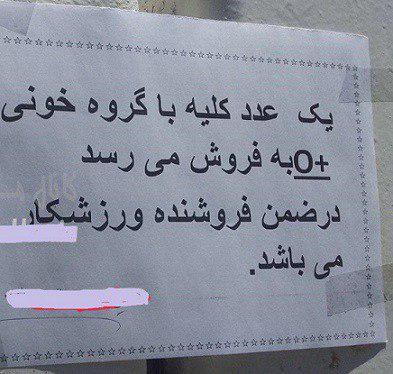 یک عدد کلیه با گروه خونی
O+به فروش می رسد
درضمن فروشنده ورزشکار
می باشد.